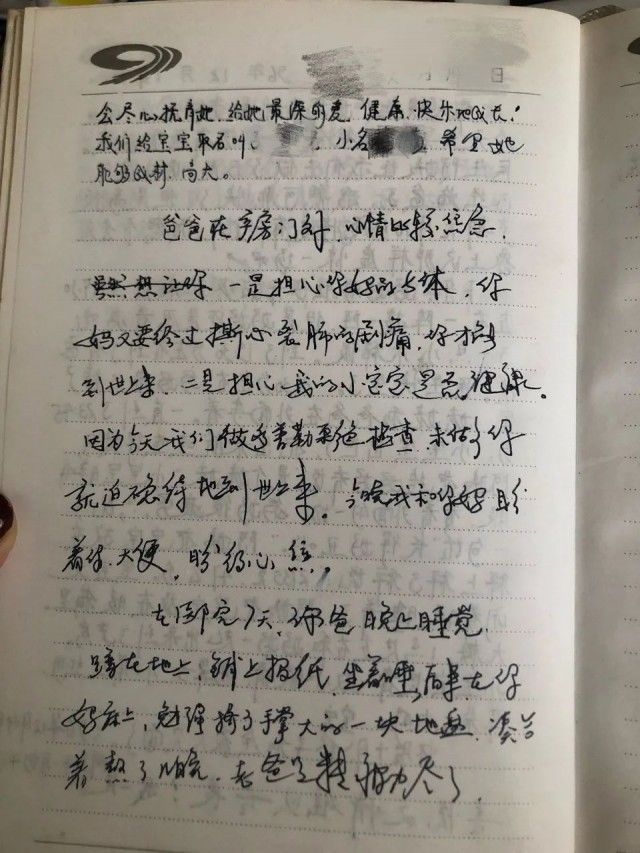 会尽心抚育她,给她最深的爱,健康、快乐地成长!
我们给宝宝取名叫 小名 希望她
能够成材、高大。
爸爸在产房门外,心情比较焦急,
虽然想让你 一是担心你妈的身体,你
妈又要经过撕心裂肺的剧痛,你才能
到世上来,二是担心我的小宝宝是否健康。
因为今天我们做了普勒彩色检查,未做了你
就迫不及待地到世上来。今晚我和你妈盼
着你大便,盼得心焦,
在医院7天,你爸晚上睡觉
在地上,铺上报纸,坐着睡,后来在你
妈床上,勉强挤了手掌大的一块地盘,凑合
着熬了几晚,老爸已精疲力尽了